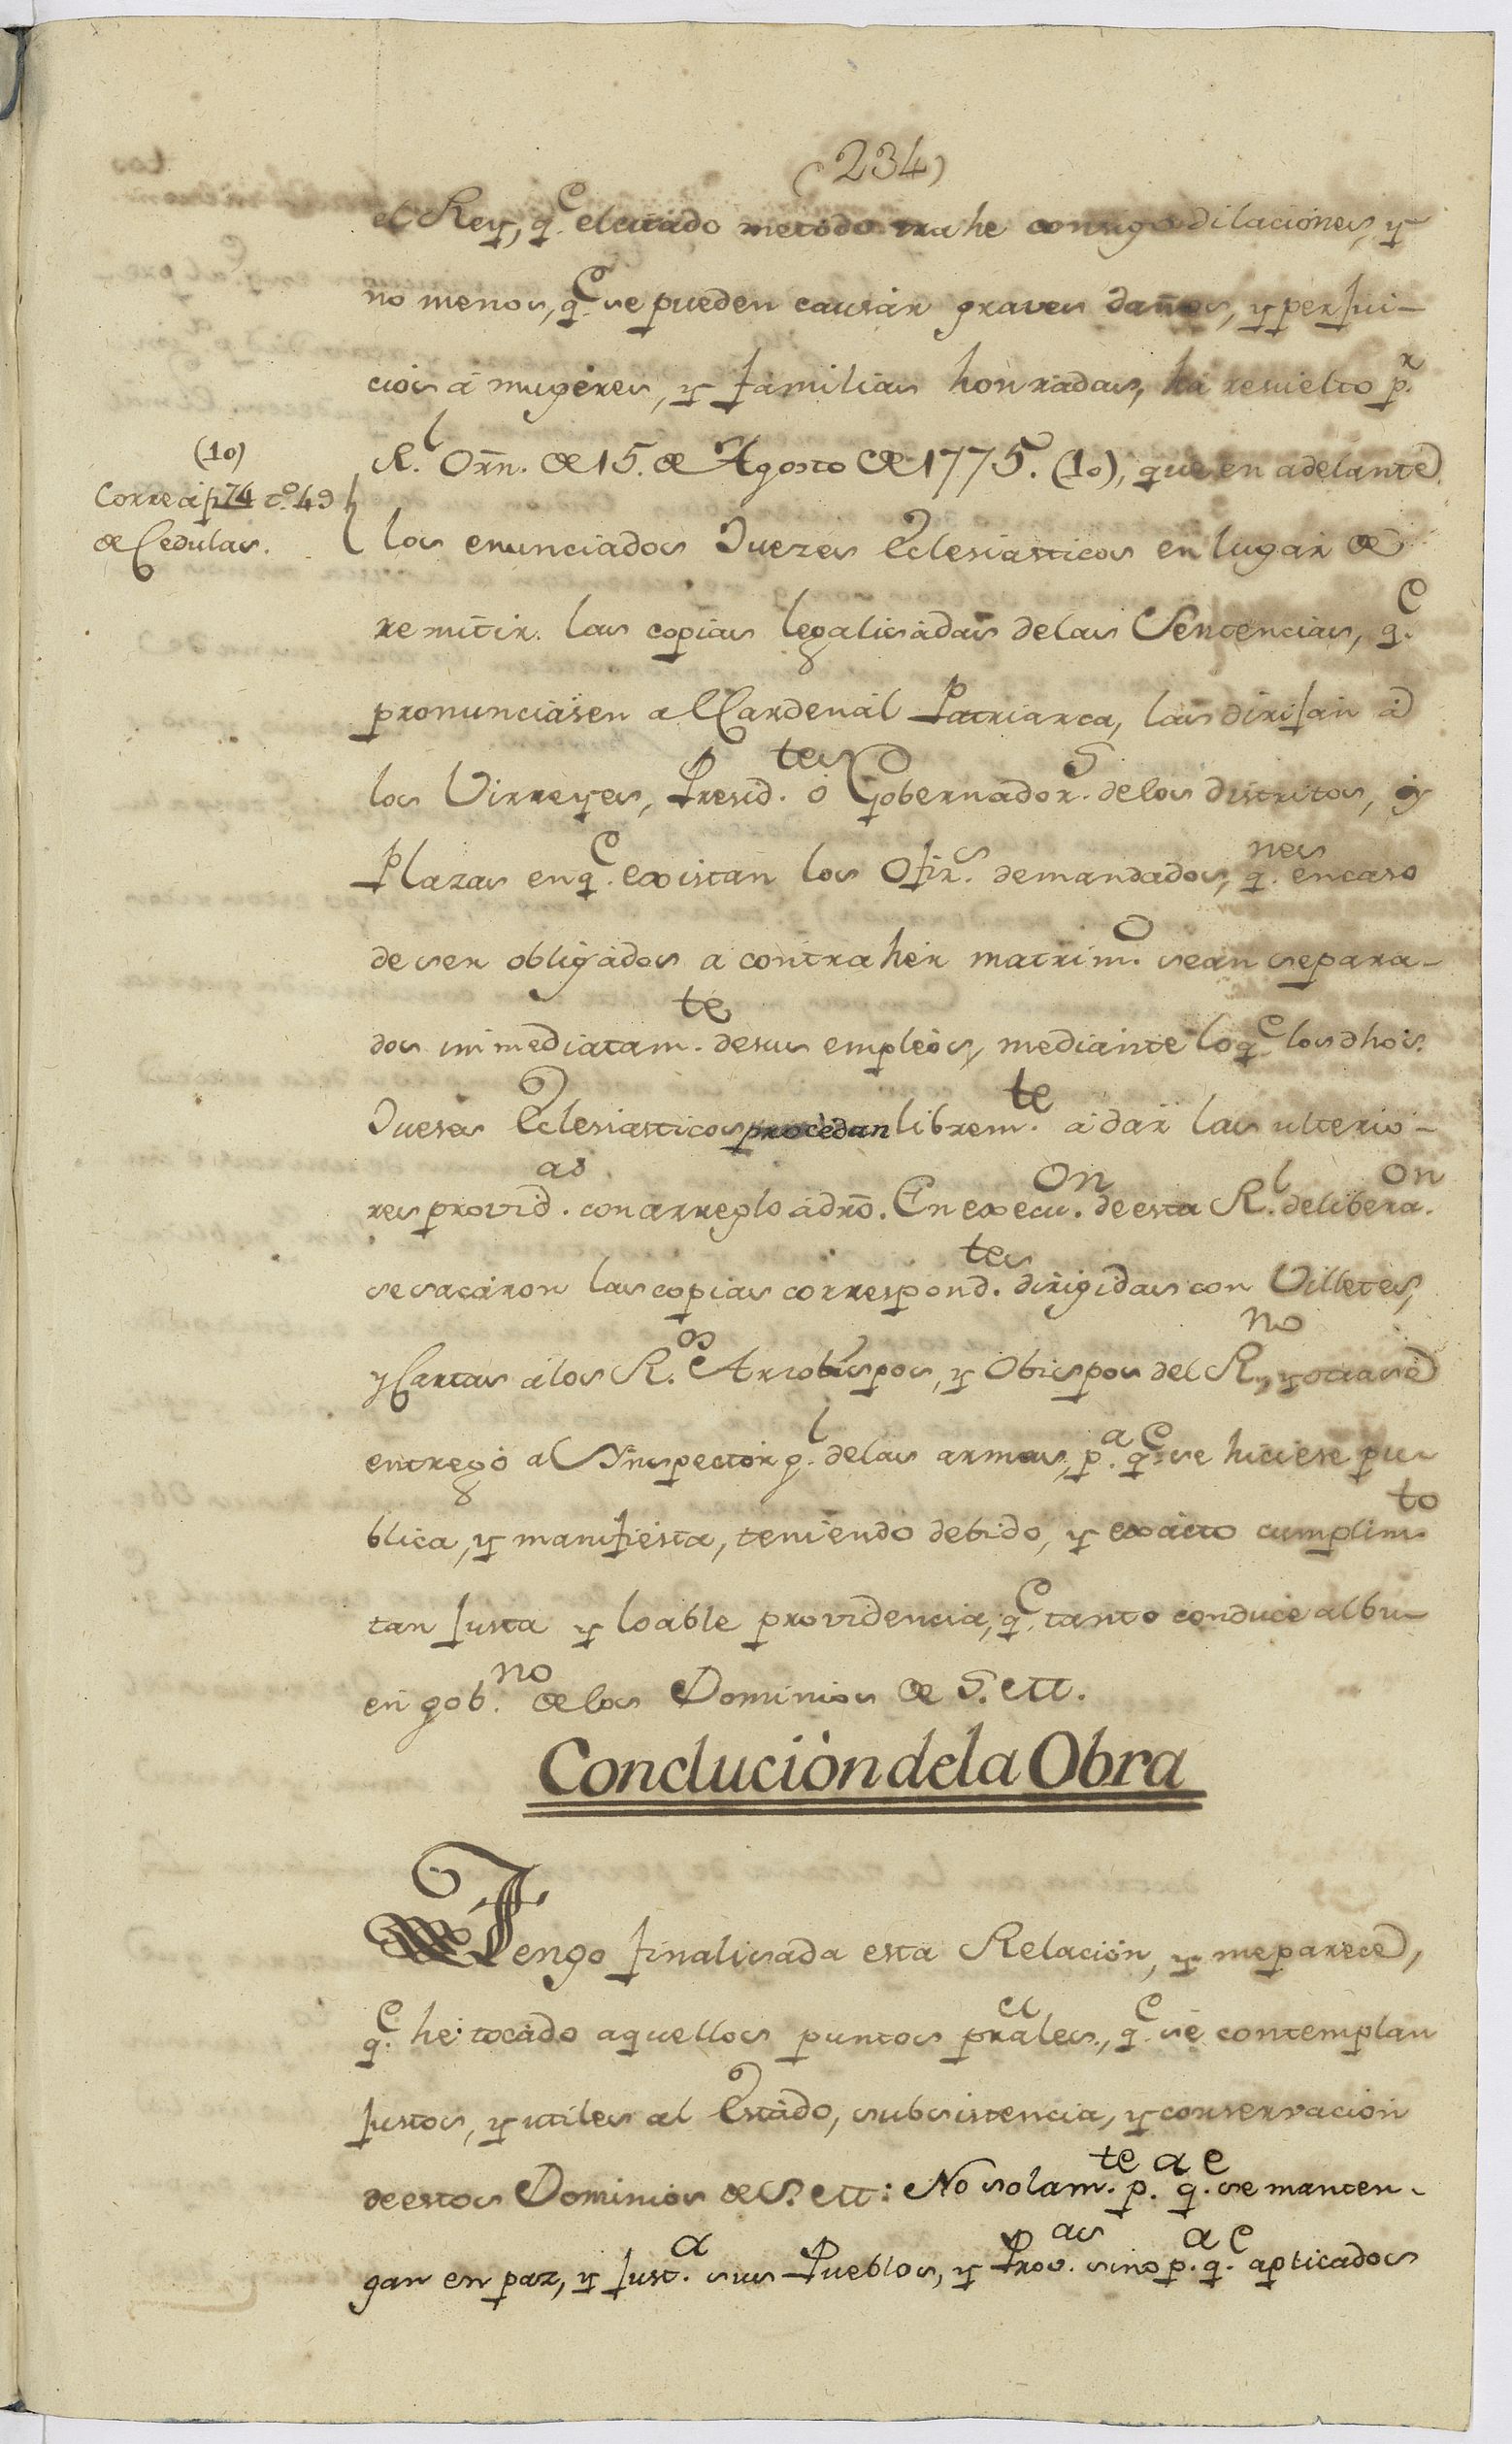 (234)
el Rey, q.e el citado metodo trahe consigo dilaciones, y
no menos, q.e se pueden causar graves daños, y perjui-
cios á mugeres, y familias honradas, há resuelto p.r
R.l Orñ. de 15. de Agosto de 1775. (10), que en adelante
(10)
Corre á f 74 t.o 49
de Cedulas.
los enunciados Juezes Eclesiasticos en lugar de
remitir las copias legalisadas delas Sentencias, q.e
pronunciasen al Cardenal Patriarca, las dirijan á
los Virreyes, Presid.tes ó Gobernador.s delos distritos, y
Plazas en q.e existan los Ofiz.s demandados, q.nes en caso
de ser obligados á contraher matrim.o sean separa-
dos immediatam.te de sus empleos, mediante lo q.e los dhos.
Jueses Eclesiasticos procedan librem.te á dar las ulterio-
res provid.as con arreglo á dro. En execu.on de esta R.l delibera.on
se sacaron las copias correspond.tes dirigidas con Villetes,
y Cartas á los R.os Arzobispos, y Obispos del R.no, y otra se
entregó al Ynspector g.l delas armas, p.a q.e se hiciese pu-
blica, y manifiesta, teniendo debido, y exacto cumplim.to
tan justa y loable providencia, q.e tanto conduce al bu-
en gob.no de los Dominios de S. M.
Conclución de la Obra
Tengo finalisada esta Relación, y me parece,
q.e he tocado aquellos puntos prales., q.e se contemplan
justos, y utiles al Estado, subsistencia, y conservacion
de estos Dominios de S. M: No solam.te p.a q.e se manten-
gan en paz, y just.a sus Pueblos, y Prov.as sino p.a q.e aplicados